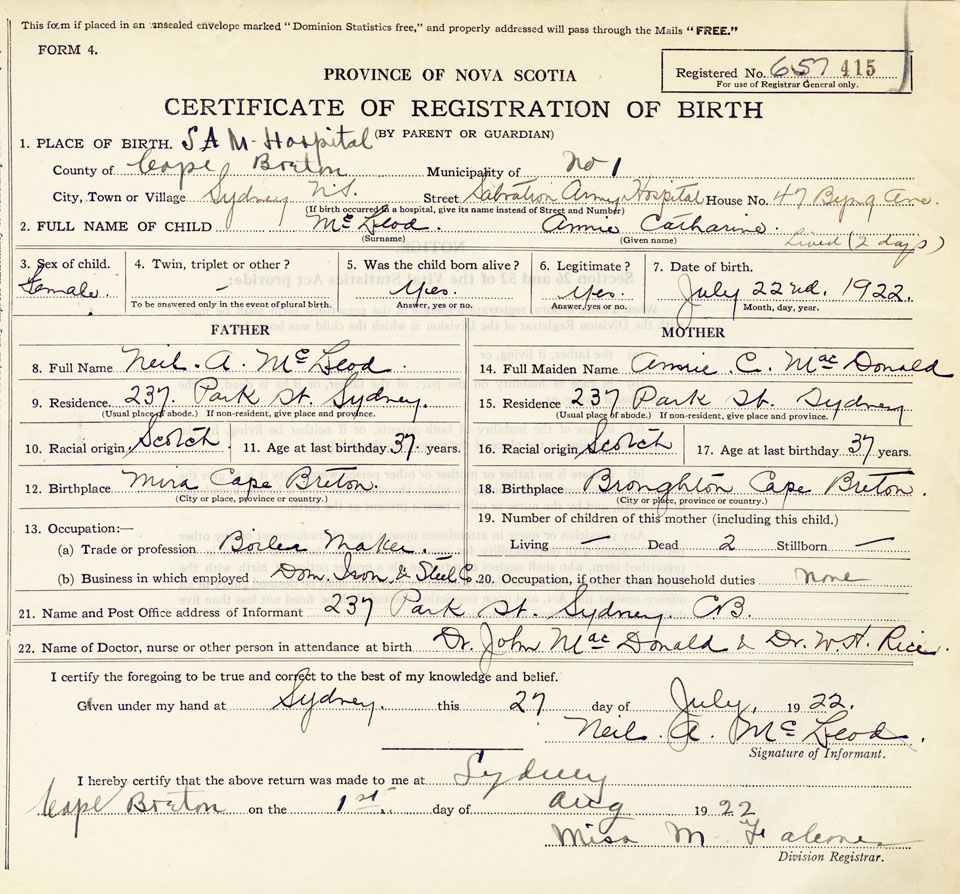 This form if placed in an unsealed envelope marked "Dominion Statistics free," and properly addressed will pass through the Mails "FREE."
FORM 4.
Registered No. 657 415
For use of Registrar General only.
PROVINCE OF NOVA SCOTIA
CERTIFICATE OF REGISTRATION OF BIRTH
(BY PARENT OR GUARDIAN)
1. PLACE OF BIRTH. S A M. Hospital
County of Cape Breton Municipality of No 1
City, Town or Village Sydney N.S. Street Salvation Army Hospital House No. 47 Byng Ave.
(If birth occurred in a hospital, give its name instead of Street and Number)
2. FULL NAME OF CHILD McLeod. Annie Catharine.
(Surname) (Given name) Lived (2 days)
3. Sex of child. 4. Twin, triplet or other? 5. Was the child born alive? 6. Legitimate? 7. Date of birth.
Female. - Yes. Yes. July 22nd. 1922.
To be answered only in the event of plural birth. Answer, yes or no. Answer, yes or no. Month, day, year.
FATHER MOTHER
8. Full Name Neil. A. McLeod. 14. Full Maiden Name Annie. C. MacDonald
9. Residence. 237. Park St. Sydney. 15. Residence 237 Park St. Sydney
(Usual place of abode.) If non-resident, give place and province. (Usual place of abode.) If non-resident, give place and province.
10. Racial origin Scotch 11. Age at last birthday 37 years. 16. Racial origin Scotch 17. Age at last birthday 37 years.
12. Birthplace Mira Cape Breton. 18. Birthplace Broughton Cape Breton.
(City or place, province or country.) (City or place, province or country.)
13. Occupation:— 19. Number of children of this mother (including this child.)
(a) Trade or profession Boiler Maker. Living — Dead 2 Stillborn —
(b) Business in which employed Dom. Iron & Steel C. 20. Occupation, if other than household duties none
21. Name and Post Office address of Informant 237 Park St. Sydney. C.B.
22. Name of Doctor, nurse or other person in attendance at birth Dr. John MacDonald & Dr. W. H. Rice.
I certify the foregoing to be true and correct to the best of my knowledge and belief.
Given under my hand at Sydney. this 27 day of July, 1922.
Neil. A. McLeod.
Signature of Informant.
I hereby certify that the above return was made to me at Sydney
Cape Breton on the 1st. day of Aug 1922
Miss M
Division Registrar.